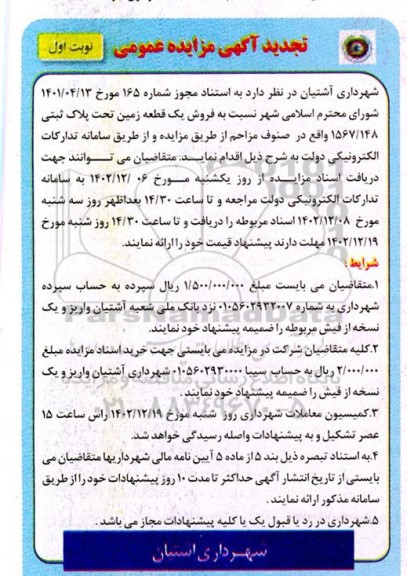 تجدید آگهی مزایده عمومی
نوبت اول
شهرداری آشتیان در نظر دارد به استناد مجوز شماره ۱۶۵ مورخ ۱۴۰۱/۰۴/۱۳
شورای محترم اسلامی شهر نسبت به فروش یک قطعه زمین تحت پلاک ثبتی
۱۵۶۷/۱۴۸ واقع در صنوف مزاحم از طریق مزایده و از طریق سامانه تدارکات
الکترونیکی دولت به شرح ذیل اقدام نمایـــد. متقاضیان می تـــوانند جهت
دریافت اسناد مزایـــده از روز یکشنبه مـــورخ ۰۶ /۱۴۰۲/۱۲ به سامانه
تدارکات الکترونیکی دولت مراجعه و تا ساعت ۱۴/۳۰ بعداظهر روز سه شنبه
مورخ ۱۴۰۲/۱۲/۰۸ اسناد مربوطه را دریافت و تا ساعت ۱۴/۳۰ روز شنبه مورخ
۱۴۰۲/۱۲/۱۹ مهلت دارند پیشنهاد قیمت خود را ارائه نمایند.
شرایط :
۱.متقاضیان می بایست مبلغ ۱/۵۰۰/۰۰۰/۰۰۰ ریال سپرده به حساب سپرده
شهرداری به شماره ۰۱۰۵۶۰۲۹۳۲۰۰۷ نزد بانک ملی شعبه آشتیان واریز و یک
نسخه از فیش مربوطه را ضمیمه پیشنهاد خود نمایند.
۲.کلیه متقاضیان شرکت در مزایده می بایستی جهت خرید اسناد مزایده مبلغ
۲/۰۰۰/۰۰۰ ریال به حساب سیبا ۰۱۰۵۶۰۲۹۳۰۰۰۰ شهرداری آشتیان واریز و یک
نسخه از فیش را ضمیمه پیشنهاد خود نمایند.
۳.کمیسیون معاملات شهرداری روز شنبه مورخ ۱۴۰۲/۱۲/۱۹ راس ساعت ۱۵
عصر تشکیل و به پیشنهادات واصله رسیدگی خواهد شد.
۴.به استناد تبصره ذیل بند ۵ از ماده ۵ آیین نامه مالی شهرداریها متقاضیان می
بایستی از تاریخ انتشار آگهی حداکثر تا مدت ۱۰ روز پیشنهادات خود را از طریق
سامانه مذکور ارائه نمایند .
۵.شهرداری در رد یا قبول یک یا کلیه پیشنهادات مجاز می باشد .
شهـرداری آشتیان